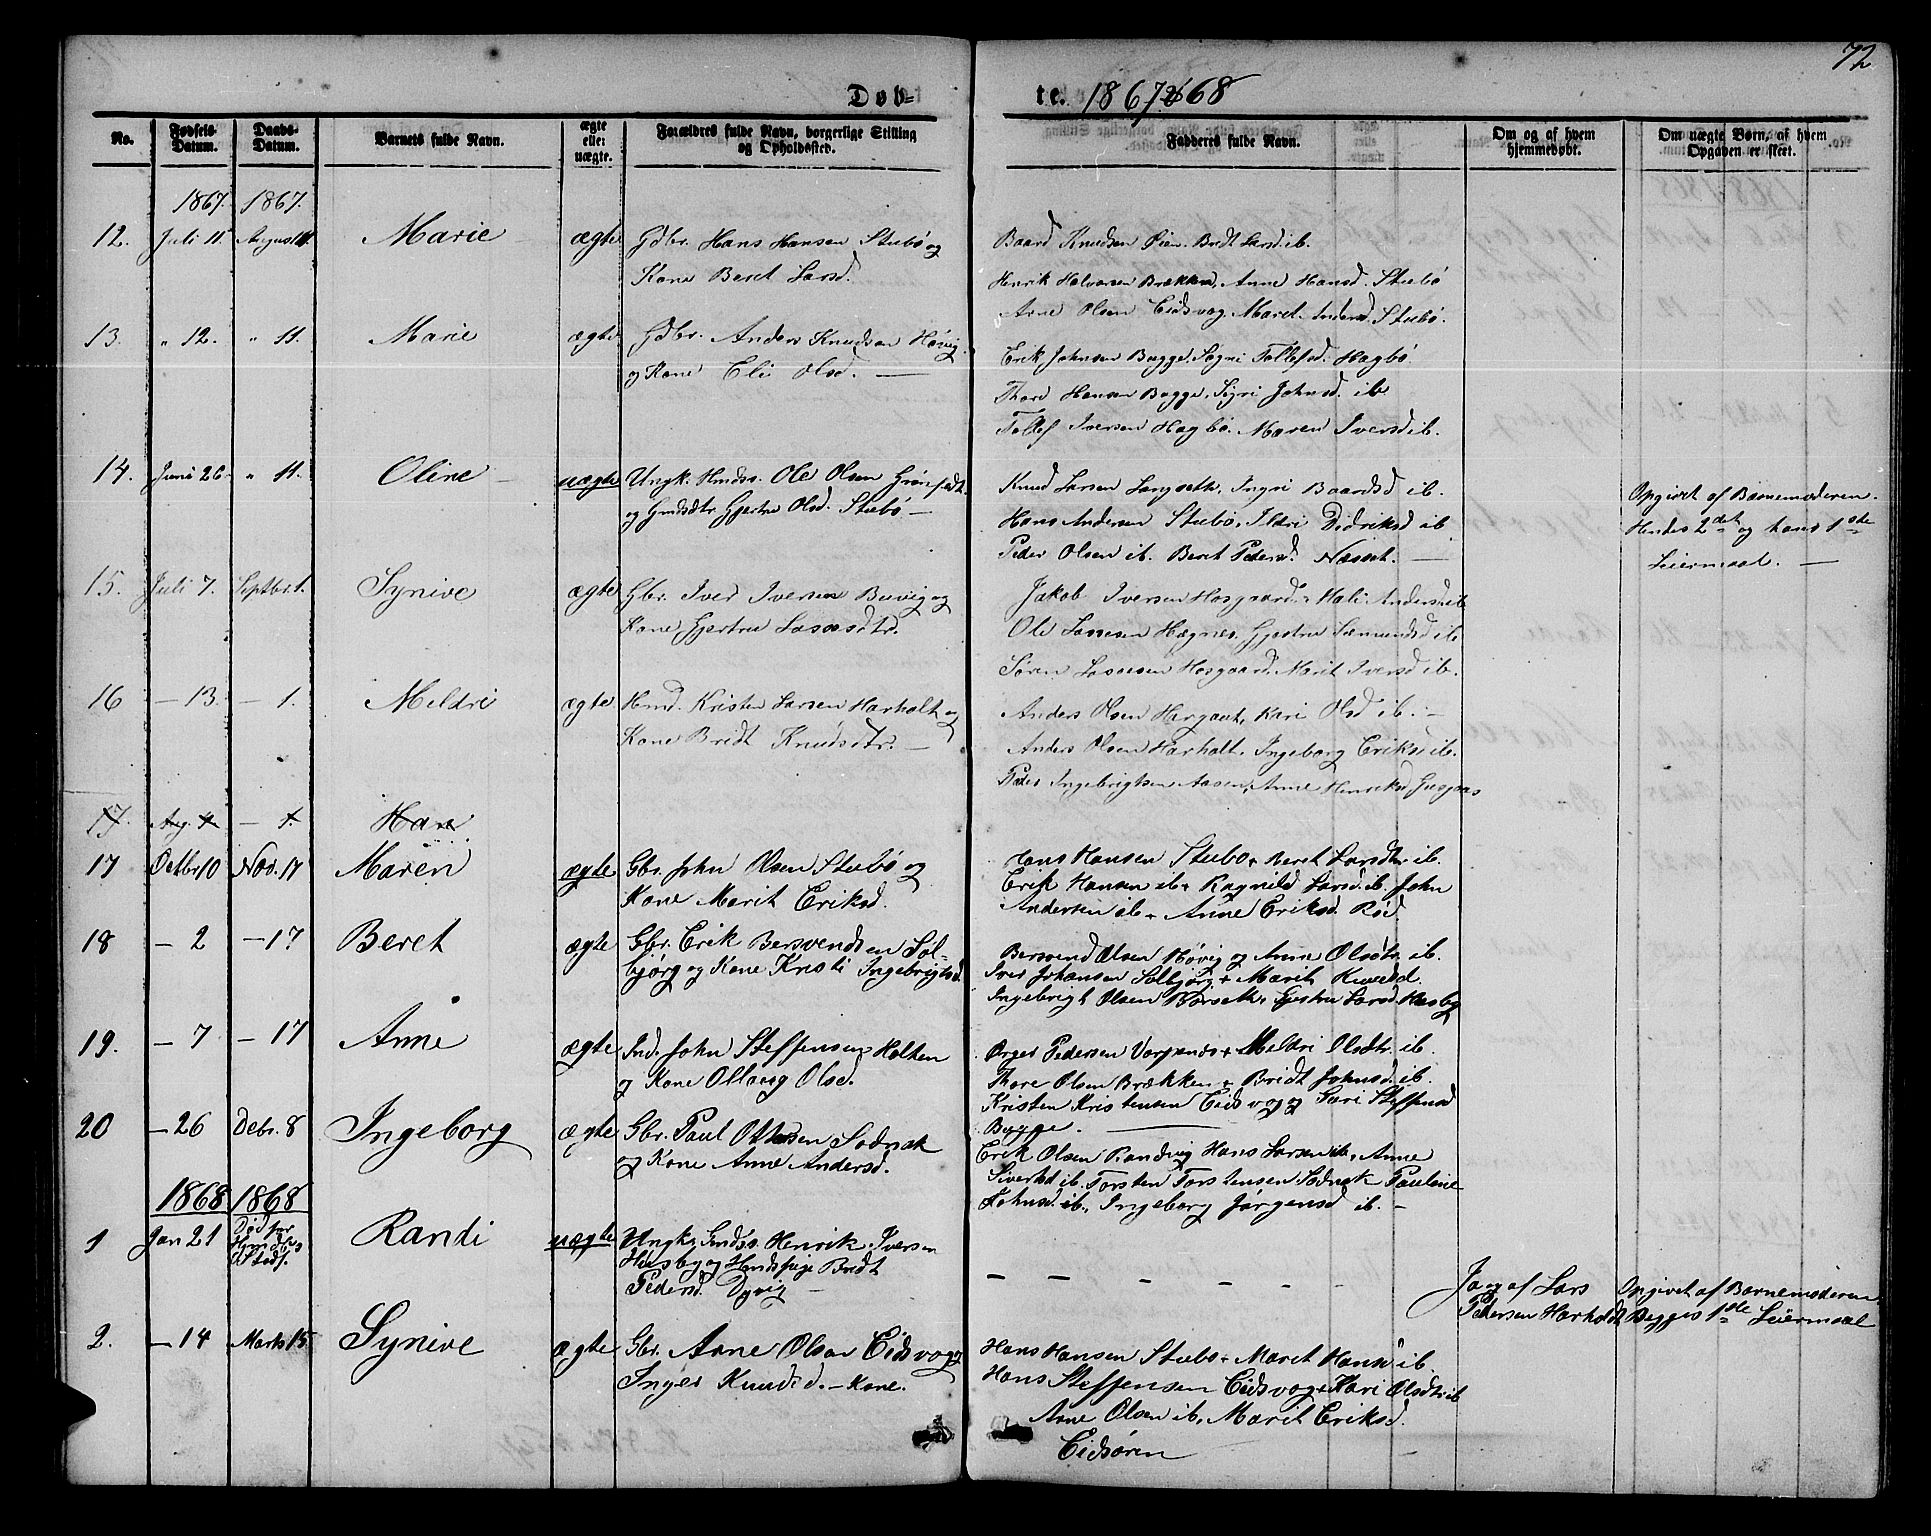 72
Døb-
te. 1867 & 68
No.
Fødsels Datum.
Daabs Datum.
Barnets fulde Navn.
ægte eller uægte.
Forældres fulde Navn, borgerlige Stilling og Opholdssted.
Faddernes fulde Navn.
Om og af hvem hjemmedøbt.
Om uægte Børn, af hvem Opgaven er skeet.
1867. 1867.
12. Juli 11. August 11. Marie ægte Gdbr. Hans Hansen Stubø og
Kone Beret Larsd.
Baard Knudsen Øien. Bredt Larsd. ib.
Henrik Halvorsen Brækken, Anne Hansd. Stubø
Arne Olsen Eidsvog. Maret Andersd. Stubø.
13. " 12. " 11. Marie ægte Gdbr. Anders Knudsen Høvig
og Kone Eli Olsd. —
Erik Johnsen Bugge. Sigri Tollefsd. Hagbø
Thore Hansen Bugge, Sigri Johnsd. ib
Tollef Iversen Hagbø. Maren Iversd ib.
14. Juni 26. " 11. Oline uægte Ungk. Hmdss. Ole Olsen
og Gmdsdtr. Gjertru Olsd. Stubø —
Knud Larsen Langseth, Ingri Baardsd ib.
Hans Andersen Stubø, Ildri Didriksd ib
Peder Olsen ib. Beret Pedersd. Næsset. —
Opgivet af Barnemoderen.
Hendes 2det og hans 1ste
Leiermaal. —
15. Juli 7. Septbr. 1. Synive ægte Gbr. Iver Iversen Buvig og
Kone Gjertru Lassesdtr.
Jakob Iversen Hosgaard, Mali Andersd ib
Ole Lassesen Hægnes, Gjertru Sæmundsd ib
Søren Lassesen Hosgaard, Marit Iversd ib.
16 — 13. — 1. Meldri ægte Hmd. Kristen Larsen Harholt og
Kone Bridt Knudsdtr. —
Anders Olsen Hargaut, Kari Olsd ib. —
Anders Olsen Harholt, Ingeborg Eriksd ib.
Peder Ingebrigtsen Aasen, Anne Henriksd
17. Aug. — 1. Han
17 Octbr 10 Nov. 17 Maren ægte Gbr. John Olsen Stubø og
Kone Marit Eriksd.
Hans Hansen Stubø + Beret Larsdtr. ib.
Erik Hansen ib + Ragnild Larsd. ib. John
Andersen ib + Anne Eriksd. Rød.
18 — 2 — 17 Beret ægte Gbr. Erik Bersvendsen Sol-
bjørg og Kone Kristi Ingebrigtsd.
Bersvend Olsen Høvig og Anne Olsdtr. ib.
Iver Johansen Solbjørg + Marit Knudsd.
Ingebrigt Olsen Torseth + Gjertru Larsd. Husby
19. — 7 — 17 Anne ægte Ind. John Steffensen Holten
og Kone Ollaug Olsd.
Pedersen Varpenæs + Meldri Olsdtr. ib.
Thore Olsen Brækken + Bridt Johnsd. ib.
Kristen Kristensen Eidsvog og Guri Steffensd
Bugge. —
20 — 26 Debr. 8 Ingeborg ægte Gbr. Paul Ottersen Sodnak
og Kone Anne Andersd.
Erik Olsen Randvig Hans Larsen ib, Anne
Sivertsd ib. Torsten Torstensen Sodnak Pauline
Johnsd. ib., Ingeborg Jørgensd ib. —
1868 1868
1 Jan 21 Død før Randi uægte Ungk. Gmdss. Henrik Iversen
Husby og Hmdspige Bridt
Pedersd. Dyvig —
— — — — — —
Ja og af Lars
Pedersen Harholdt
Opgivet af Barnemoderen
Begges 1ste Leiermaal
2. — 14 Marts 15. Synive ægte Gbr. Arne Olsen Eidsvog og
Inger Knudsd. — Kone.
Hans Hansen Stubø + Maret Hansd ib.
Hans Steffensen Eidsvog + Kari Olsdtr ib
Arne Olsen ib, Marit Eriksd.
Eidsøren